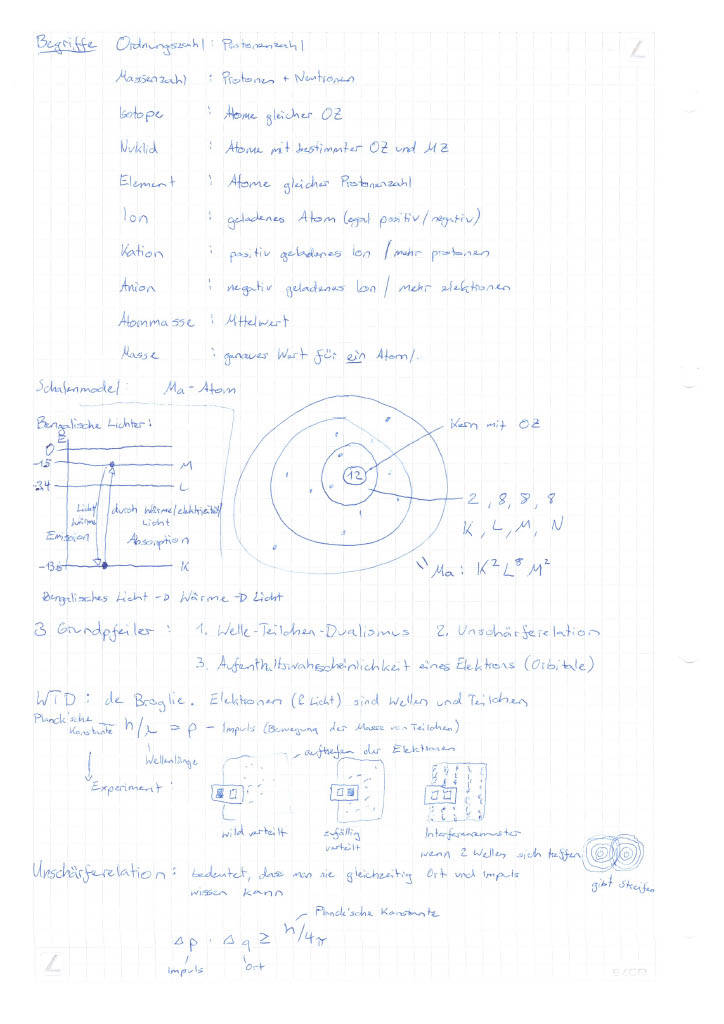 Begriffe Ordnungszahl : Protonenzahl
Massenzahl : Protonen + Neutronen
Isotope : Atome gleicher OZ
Nuklid : Atome mit bestimmter OZ und MZ
Element : Atome gleicher Protonenzahl
Ion : geladenes Atom (egal positiv/negativ)
Kation : positiv geladenes Ion / mehr protonen
Anion : negativ geladenes Ion / mehr elektronen
Atommasse : Mittelwert
Masse : genauer Wert für ein Atom/.
Schalenmodel : Ma-Atom
Bengalische Lichter:
E
0
-1.5 M
-3.4 L
Licht/ Wärme
Emission
durch Wärme/elektrizität/
Licht
Absorption
-13.6 K
Kern mit OZ
12
2, 8, 8, 8
K, L, M, N
Ma: K² L⁸ M²
Bengalisches Licht → Wärme → Licht
3 Grundpfeiler : 1. Welle-Teilchen-Dualismus 2. Unschärferelation
3. Aufenthaltswahrscheinlichkeit eines Elektrons (Orbitale)
WTD : de Broglie. Elektronen (& Licht) sind Wellen und Teilchen
Planck'sche Konstante h/λ = p - Impuls (Bewegung der Masse von Teilchen)
Wellenlänge
auftrefen der Elektronen
Experiment :
wild verteilt
zufällig verteilt
Interferenzmuster
wenn 2 Wellen sich treffen
gibt streifen
Unschärferelation : bedeutet, dass man nie gleichzeitig Ort und Impuls
wissen kann
Planck'sche Konstante
Δp · Δq ≥ h/4π
Impuls Ort